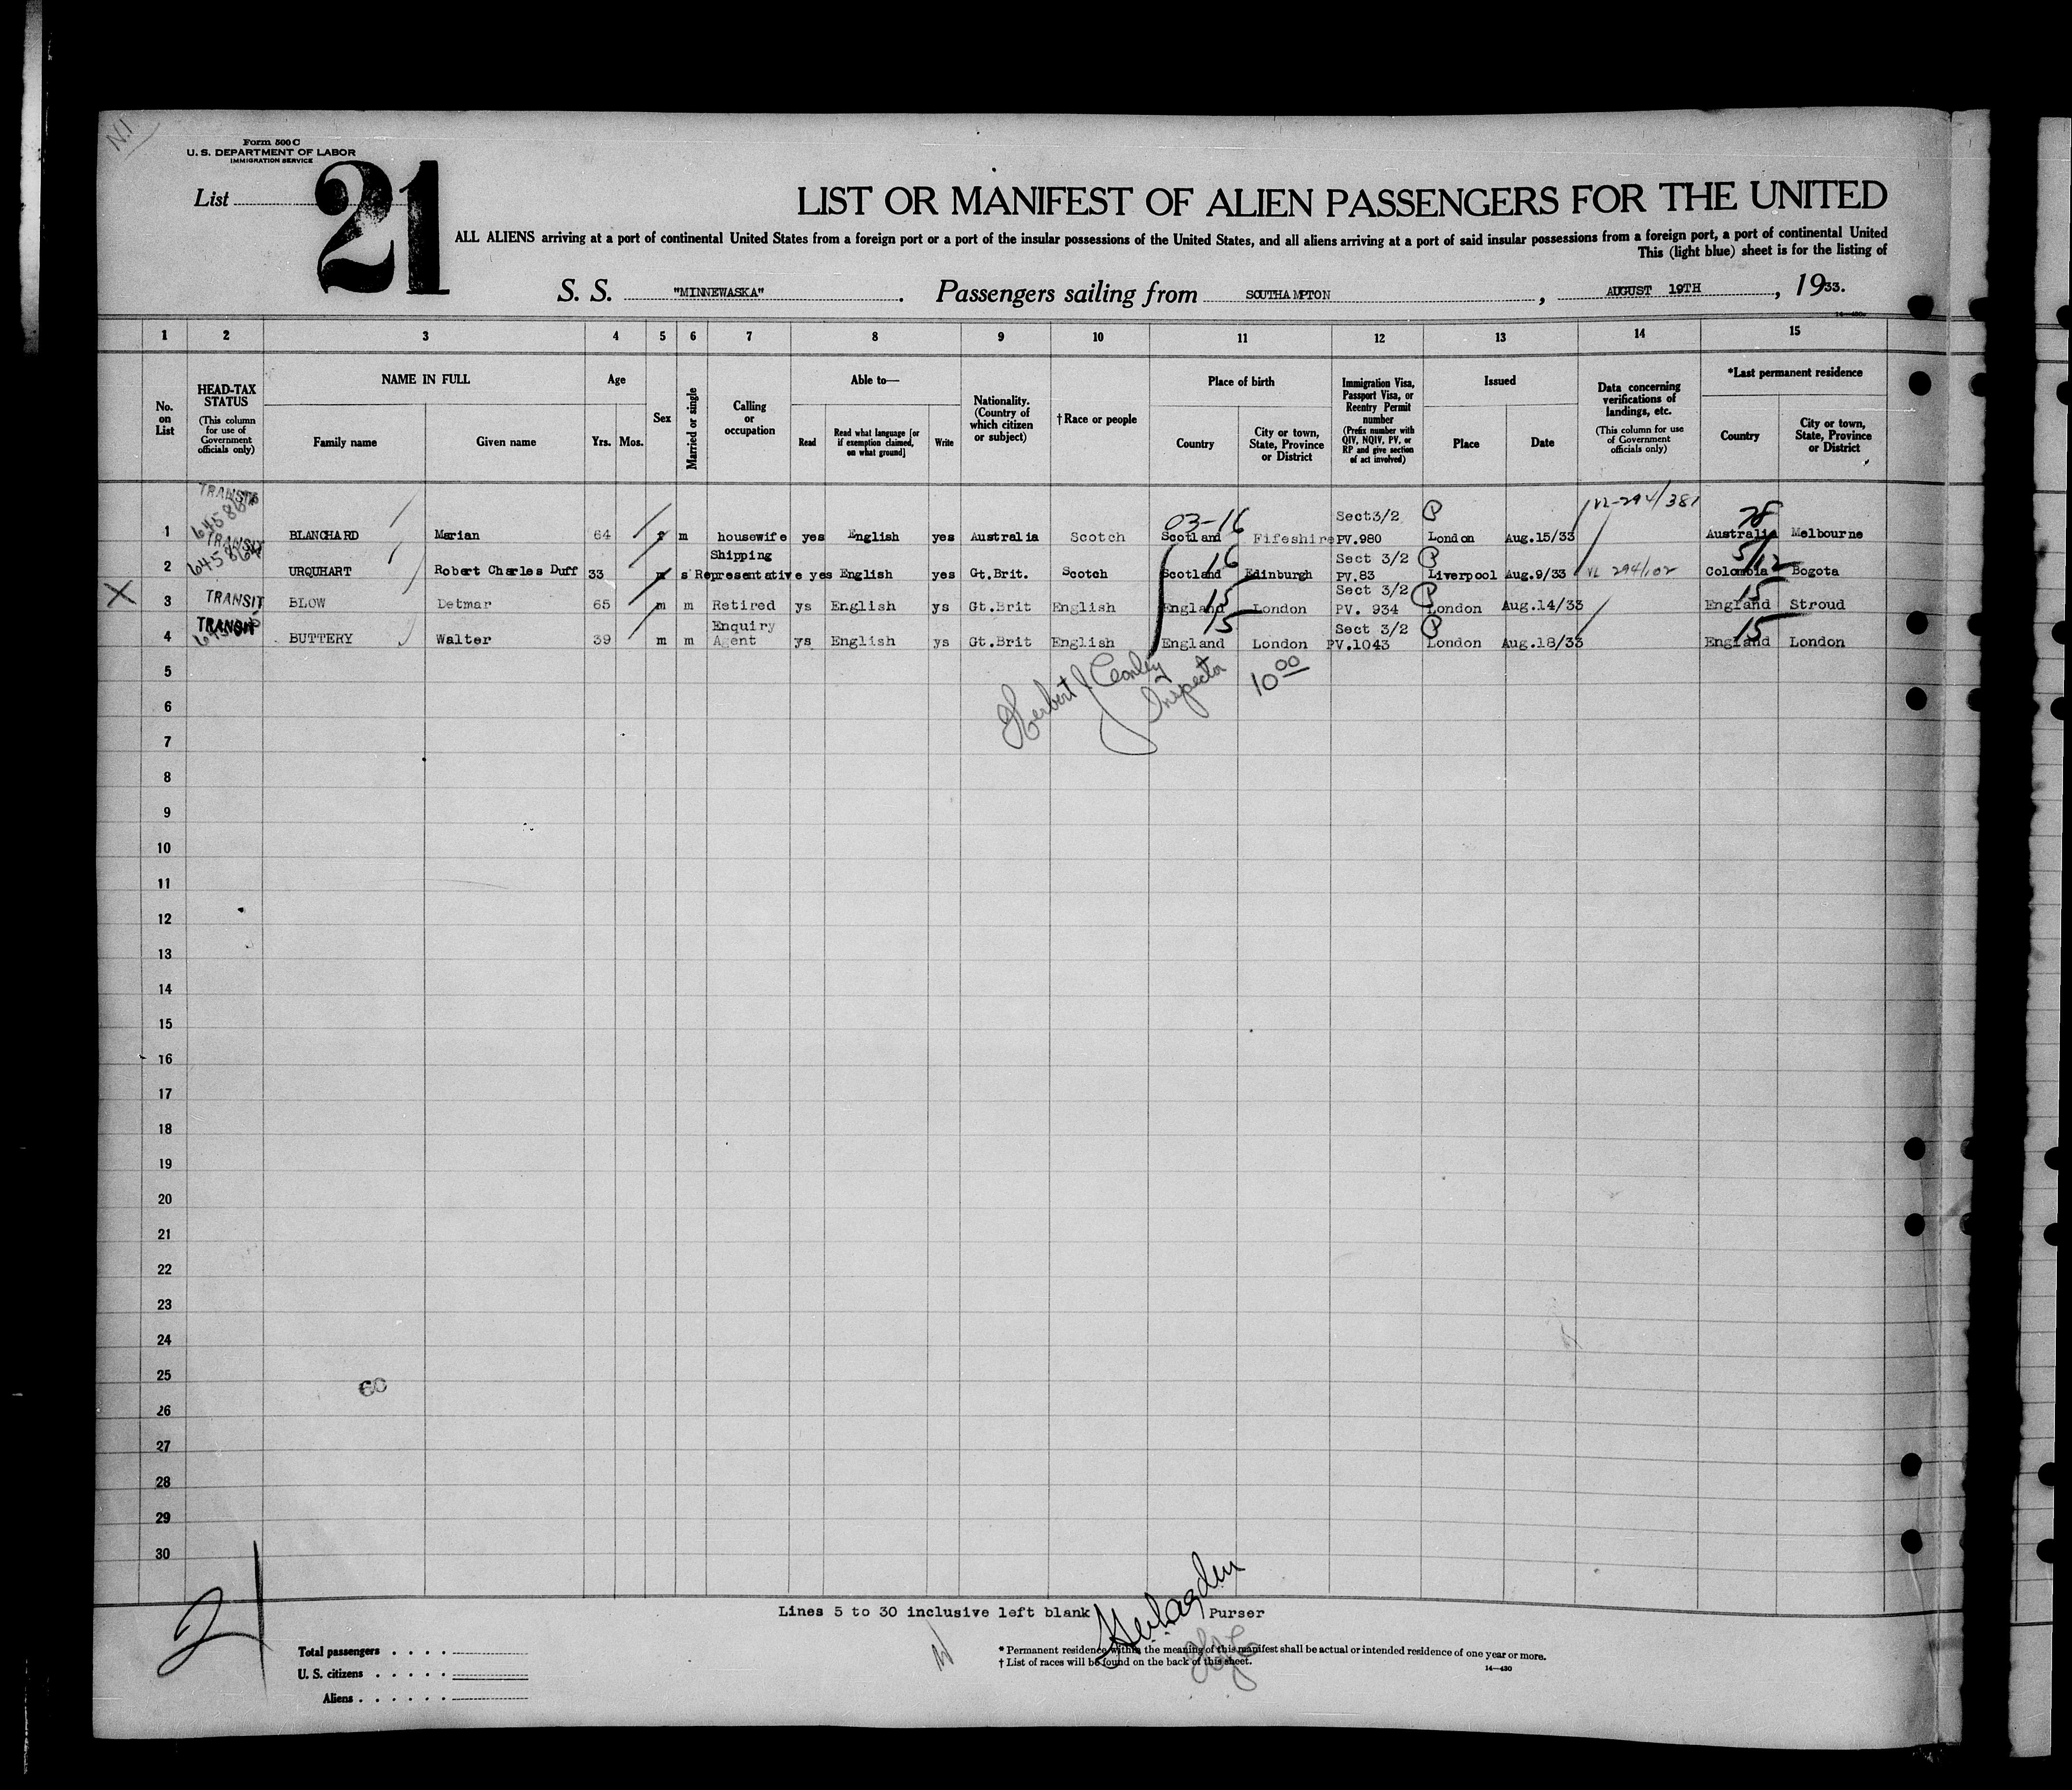 N.I
Form 500 C
U. S. DEPARTMENT OF LABOR
IMMIGRATION SERVICE
List 21
LIST OR MANIFEST OF ALIEN PASSENGERS FOR THE UNITED
ALL ALIENS arriving at a port of continental United States from a foreign port or a port of the insular possessions of the United States, and all aliens arriving at a port of said insular possessions from a foreign port, a port of continental United
This (light blue) sheet is for the listing of
S. S. "MINNEWASKA". Passengers sailing from SOUTHAMPTON, AUGUST 19TH, 1933.
1 2 3 4 5 6 7 8 9 10 11 12 13 14 15
No. on List
HEAD-TAX STATUS
(This column for use of Government officials only)
NAME IN FULL
Family name Given name
Age
Yrs. Mos.
Sex
Married or single
Calling or occupation
Able to—
Read
Read what language [or if exemption claimed, on what ground]
Write
Nationality. (Country of which citizen or subject)
†Race or people
Place of birth
Country
City or town, State, Province or District
Immigration Visa, Passport Visa, or Reentry Permit number
(Prefix number with QIV, NQIV, PV, or RP and give section of act involved)
Issued
Place Date
Data concerning verifications of landings, etc.
(This column for use of Government officials only)
*Last permanent residence
Country
City or town, State, Province or District
TRANSIT 03-16 Sect3/2 P VL-294/381 28
1 BLANCHARD Marian 64 f m housewife yes English yes Australia Scotch Scotland Fifeshire PV.980 London Aug.15/33 Australia Melbourne
TRANSIT Shipping 16 Sect 3/2 P 5/12
2 URQUHART Robert Charles Duff 33 m s Representative yes English yes Gt.Brit. Scotch Scotland Edinburgh PV.83 Liverpool Aug.9/33 VL 294/102 Colombia Bogota
X TRANSIT 15 Sect 3/2 P 15
3 BLOW Detmar 65 m m Retired ys English ys Gt.Brit English England London PV. 934 London Aug.14/33 England Stroud
TRANSIT Enquiry 15 Sect 3/2 P 15
4 BUTTERY Walter 39 m m Agent ys English ys Gt.Brit English England London PV.1043 London Aug.18/33 England London
Herbert J Conley Inspector 10 00
5
6
7
8
9
10
11
12
13
14
15
16
17
18
19
20
21
22
23
24
25
60
26
27
28
29
30
21
Lines 5 to 30 inclusive left blank Purser
Total passengers
U. S. citizens
Aliens
* Permanent residence within the meaning of this manifest shall be actual or intended residence of one year or more.
† List of races will be found on the back of this sheet.
14—430